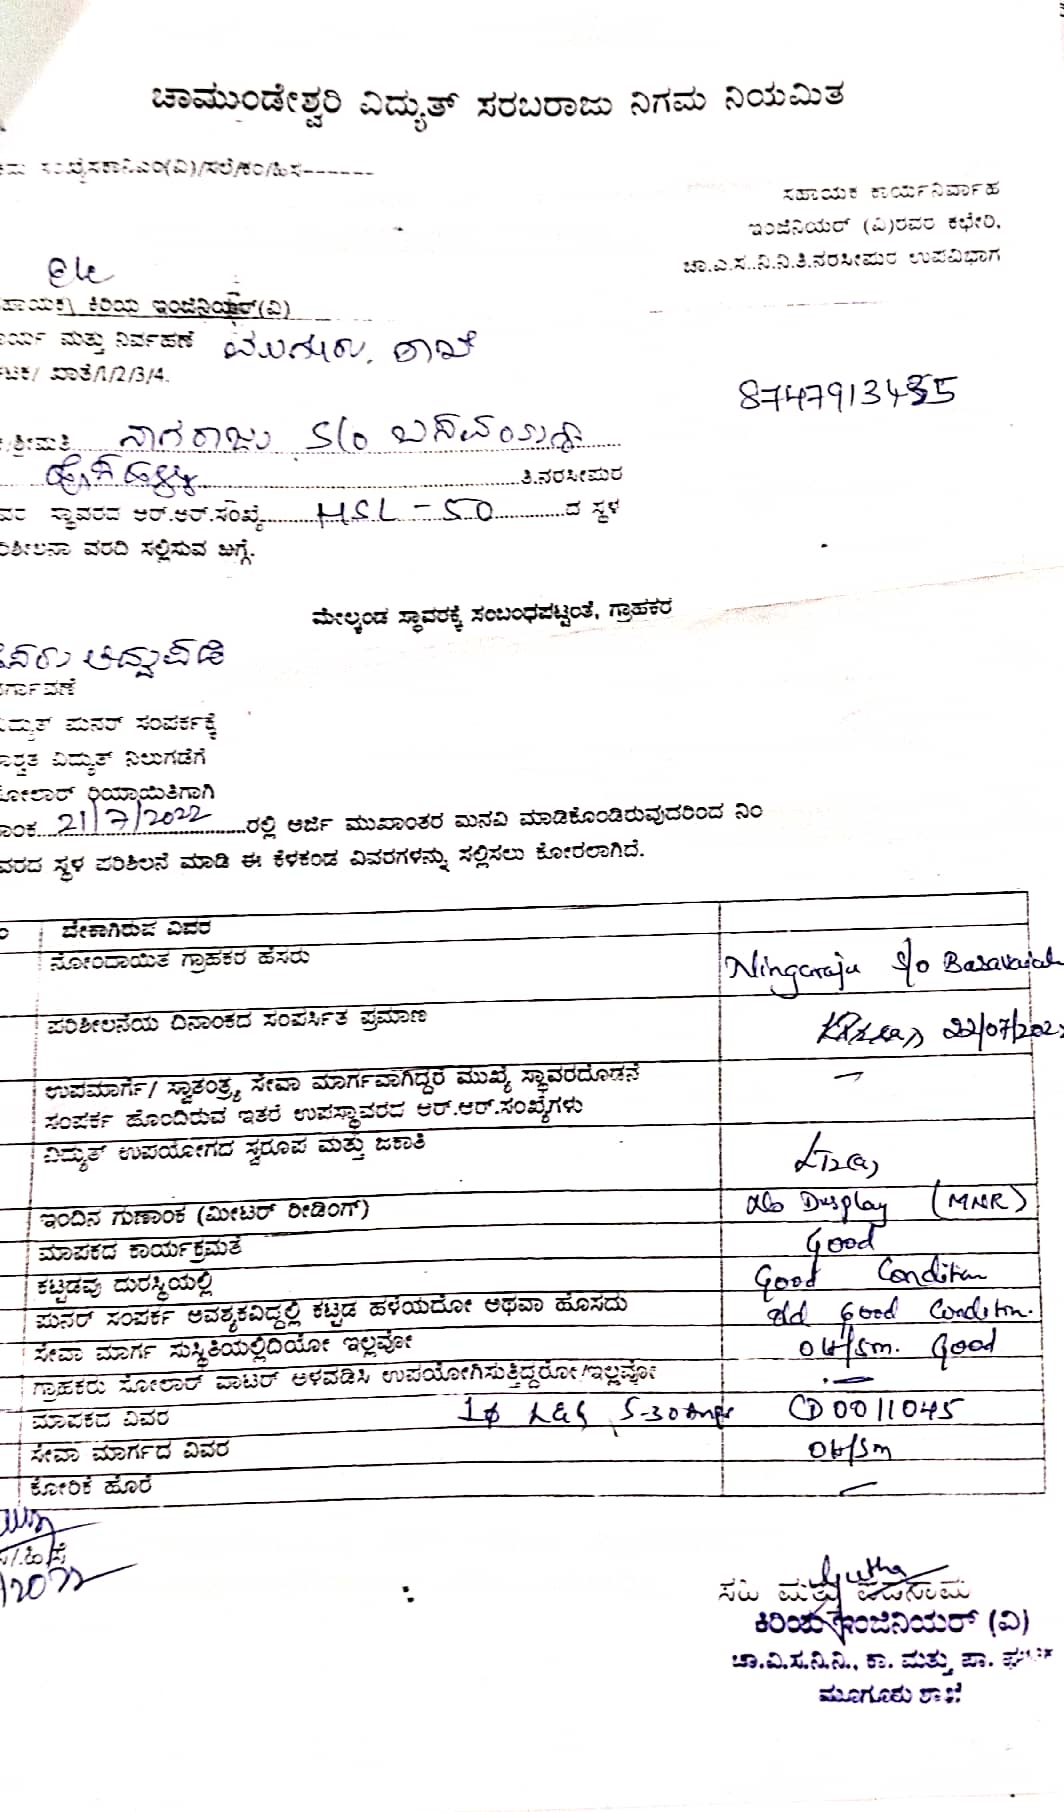 ಚಾಮುಂಡೇಶ್ವರಿ ವಿದ್ಯುತ್ ಸರಬರಾಜು ನಿಗಮ ನಿಯಮಿತ
ಸಹಾಯಕ ಕಾರ್ಯನಿರ್ವಾಹ
ಇಂಜಿನಿಯರ್ (ವಿ)ರವರ ಕಛೇರಿ,
ಚಾ.ವಿ.ಸ..ನಿ.ನಿ.ತಿ.ನರಸೀಪುರ ಉಪವಿಭಾಗ
ಹಾಯಕ\ ಕಿರಿಯ ಇಂಜಿನಿಯರ್(ವಿ)
ರ್ಯ ಮತ್ತು ನಿರ್ವಹಣೆ ಮೂಗೂರು. ಶಾಖೆ
ಟಕ/ ಖಾತೆ/1/2/3/4.
8747913435
ಶ್ರೀಮತಿ ನಾಗರಾಜು S/o ಬಸವಯ್ಯ
ಹೊಸಹಳ್ಳಿ ತಿ.ನರಸೀಪುರ
ವರ ಸ್ಥಾವರದ ಆರ್.ಆರ್.ಸಂಖ್ಯೆ HSL-50 ದ ಸ್ಥಳ
ರಿಶೀಲನಾ ವರದಿ ಸಲ್ಲಿಸುವ ಬಗ್ಗೆ.
ಮೇಲ್ಕಂಡ ಸ್ಥಾವರಕ್ಕೆ ಸಂಬಂಧಪಟ್ಟಂತೆ, ಗ್ರಾಹಕರ
ಹೆಸರು ತಿದ್ದುಪಡಿ
ರ್ಗಾವಣೆ
ವಿದ್ಯುತ್ ಮನರ್ ಸಂಪರ್ಕಕ್ಕೆ
ಶಾಶ್ವತ ವಿದ್ಯುತ್ ನಿಲುಗಡೆಗೆ
ಸೋಲಾರ್ ರಿಯಾಯಿತಿಗಾಗಿ
ನಾಂಕ 21/7/2022 ರಲ್ಲಿ ಅರ್ಜಿ ಮುಖಾಂತರ ಮನವಿ ಮಾಡಿಕೊಂಡಿರುವುದರಿಂದ ನಿಂ
ವರದ ಸ್ಥಳ ಪರಿಶೀಲನೆ ಮಾಡಿ ಈ ಕೆಳಕಂಡ ವಿವರಗಳನ್ನು ಸಲ್ಲಿಸಲು ಕೋರಲಾಗಿದೆ.
ಬೇಕಾಗಿರುವ ವಿವರ
ನೋಂದಾಯಿತ ಗ್ರಾಹಕರ ಹೆಸರು Ningaraju S/o Basavaiah
ಪರಿಶೀಲನೆಯ ದಿನಾಂಕದ ಸಂಪರ್ಸಿತ ಪ್ರಮಾಣ 22/07/202
ಉಪಮಾರ್ಗ/ ಸ್ವಾತಂತ್ರ್ಯ ಸೇವಾ ಮಾರ್ಗವಾಗಿದ್ದರೆ ಮುಖ್ಯ ಸ್ಥಾವರದೊಡನೆ
ಸಂಪರ್ಕ ಹೊಂದಿರುವ ಇತರೆ ಉಪಸ್ಥಾವರದ ಆರ್.ಆರ್.ಸಂಖ್ಯೆಗಳು
ವಿದ್ಯುತ್ ಉಪಯೋಗದ ಸ್ವರೂಪ ಮತ್ತು ಜಕಾತಿ LT2(a)
ಇಂದಿನ ಗುಣಾಂಕ (ಮೀಟರ್ ರೀಡಿಂಗ್) No Display (MNR)
ಮಾಪಕದ ಕಾರ್ಯಕ್ರಮತೆ Good
ಕಟ್ಟಡವು ದುರಸ್ಥಿಯಲ್ಲಿ Good Condition
ಮನರ್ ಸಂಪರ್ಕ ಅವಶ್ಯಕವಿದ್ದಲ್ಲಿ ಕಟ್ಟಡ ಹಳೆಯದೋ ಅಥವಾ ಹೊಸದು old Good Condition.
ಸೇವಾ ಮಾರ್ಗ ಸುಸ್ಥಿತಿಯಲ್ಲಿದಿಯೋ ಇಲ್ಲವೋ OH/5m. Good
ಗ್ರಾಹಕರು ಸೋಲಾರ್ ವಾಟರ್ ಅಳವಡಿಸಿ ಉಪಯೋಗಿಸುತ್ತಿದ್ದರೋ/ಇಲ್ಲವೋ
ಮಾಪಕದ ವಿವರ 1φ L&G 5-30Amps CD0011045
ಸೇವಾ ಮಾರ್ಗದ ವಿವರ OH/5m
ಕೋರಿಕೆ ಹೊರೆ
ಸಹಿ ಮತ್ತು ಪದನಾಮ
ಕಿರಿಯ ಇಂಜಿನಿಯರ್ (ವಿ)
ಚಾ.ವಿ.ಸ.ನಿ.ನಿ., ಕಾ. ಮತ್ತು ಪಾ. ಘಟಕ
ಮೂಗೂರು ಶಾಖೆ